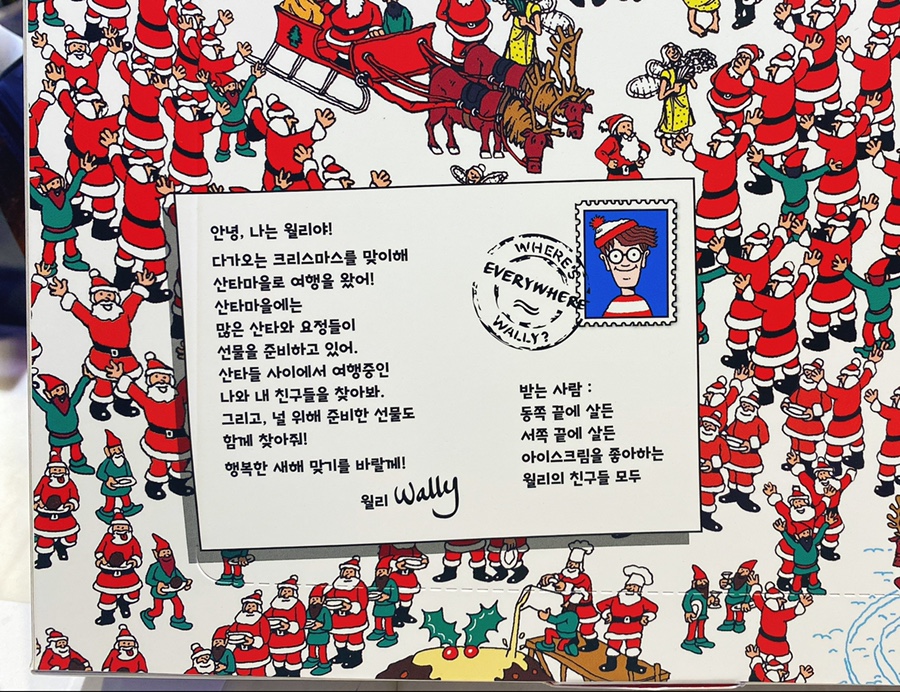 안녕, 나는 월리야!
다가오는 크리스마스를 맞이해
산타마을로 여행을 왔어!
산타마을에는
많은 산타와 요정들이
선물을 준비하고 있어.
산타들 사이에서 여행중인
나와 내 친구들을 찾아봐.
그리고, 널 위해 준비한 선물도
함께 찾아줘!
행복한 새해 맞기를 바랄게!
월리 Wally
WHERE'S
EVERYWHERE
WALLY?
받는 사람 :
동쪽 끝에 살든
서쪽 끝에 살든
아이스크림을 좋아하는
월리의 친구들 모두